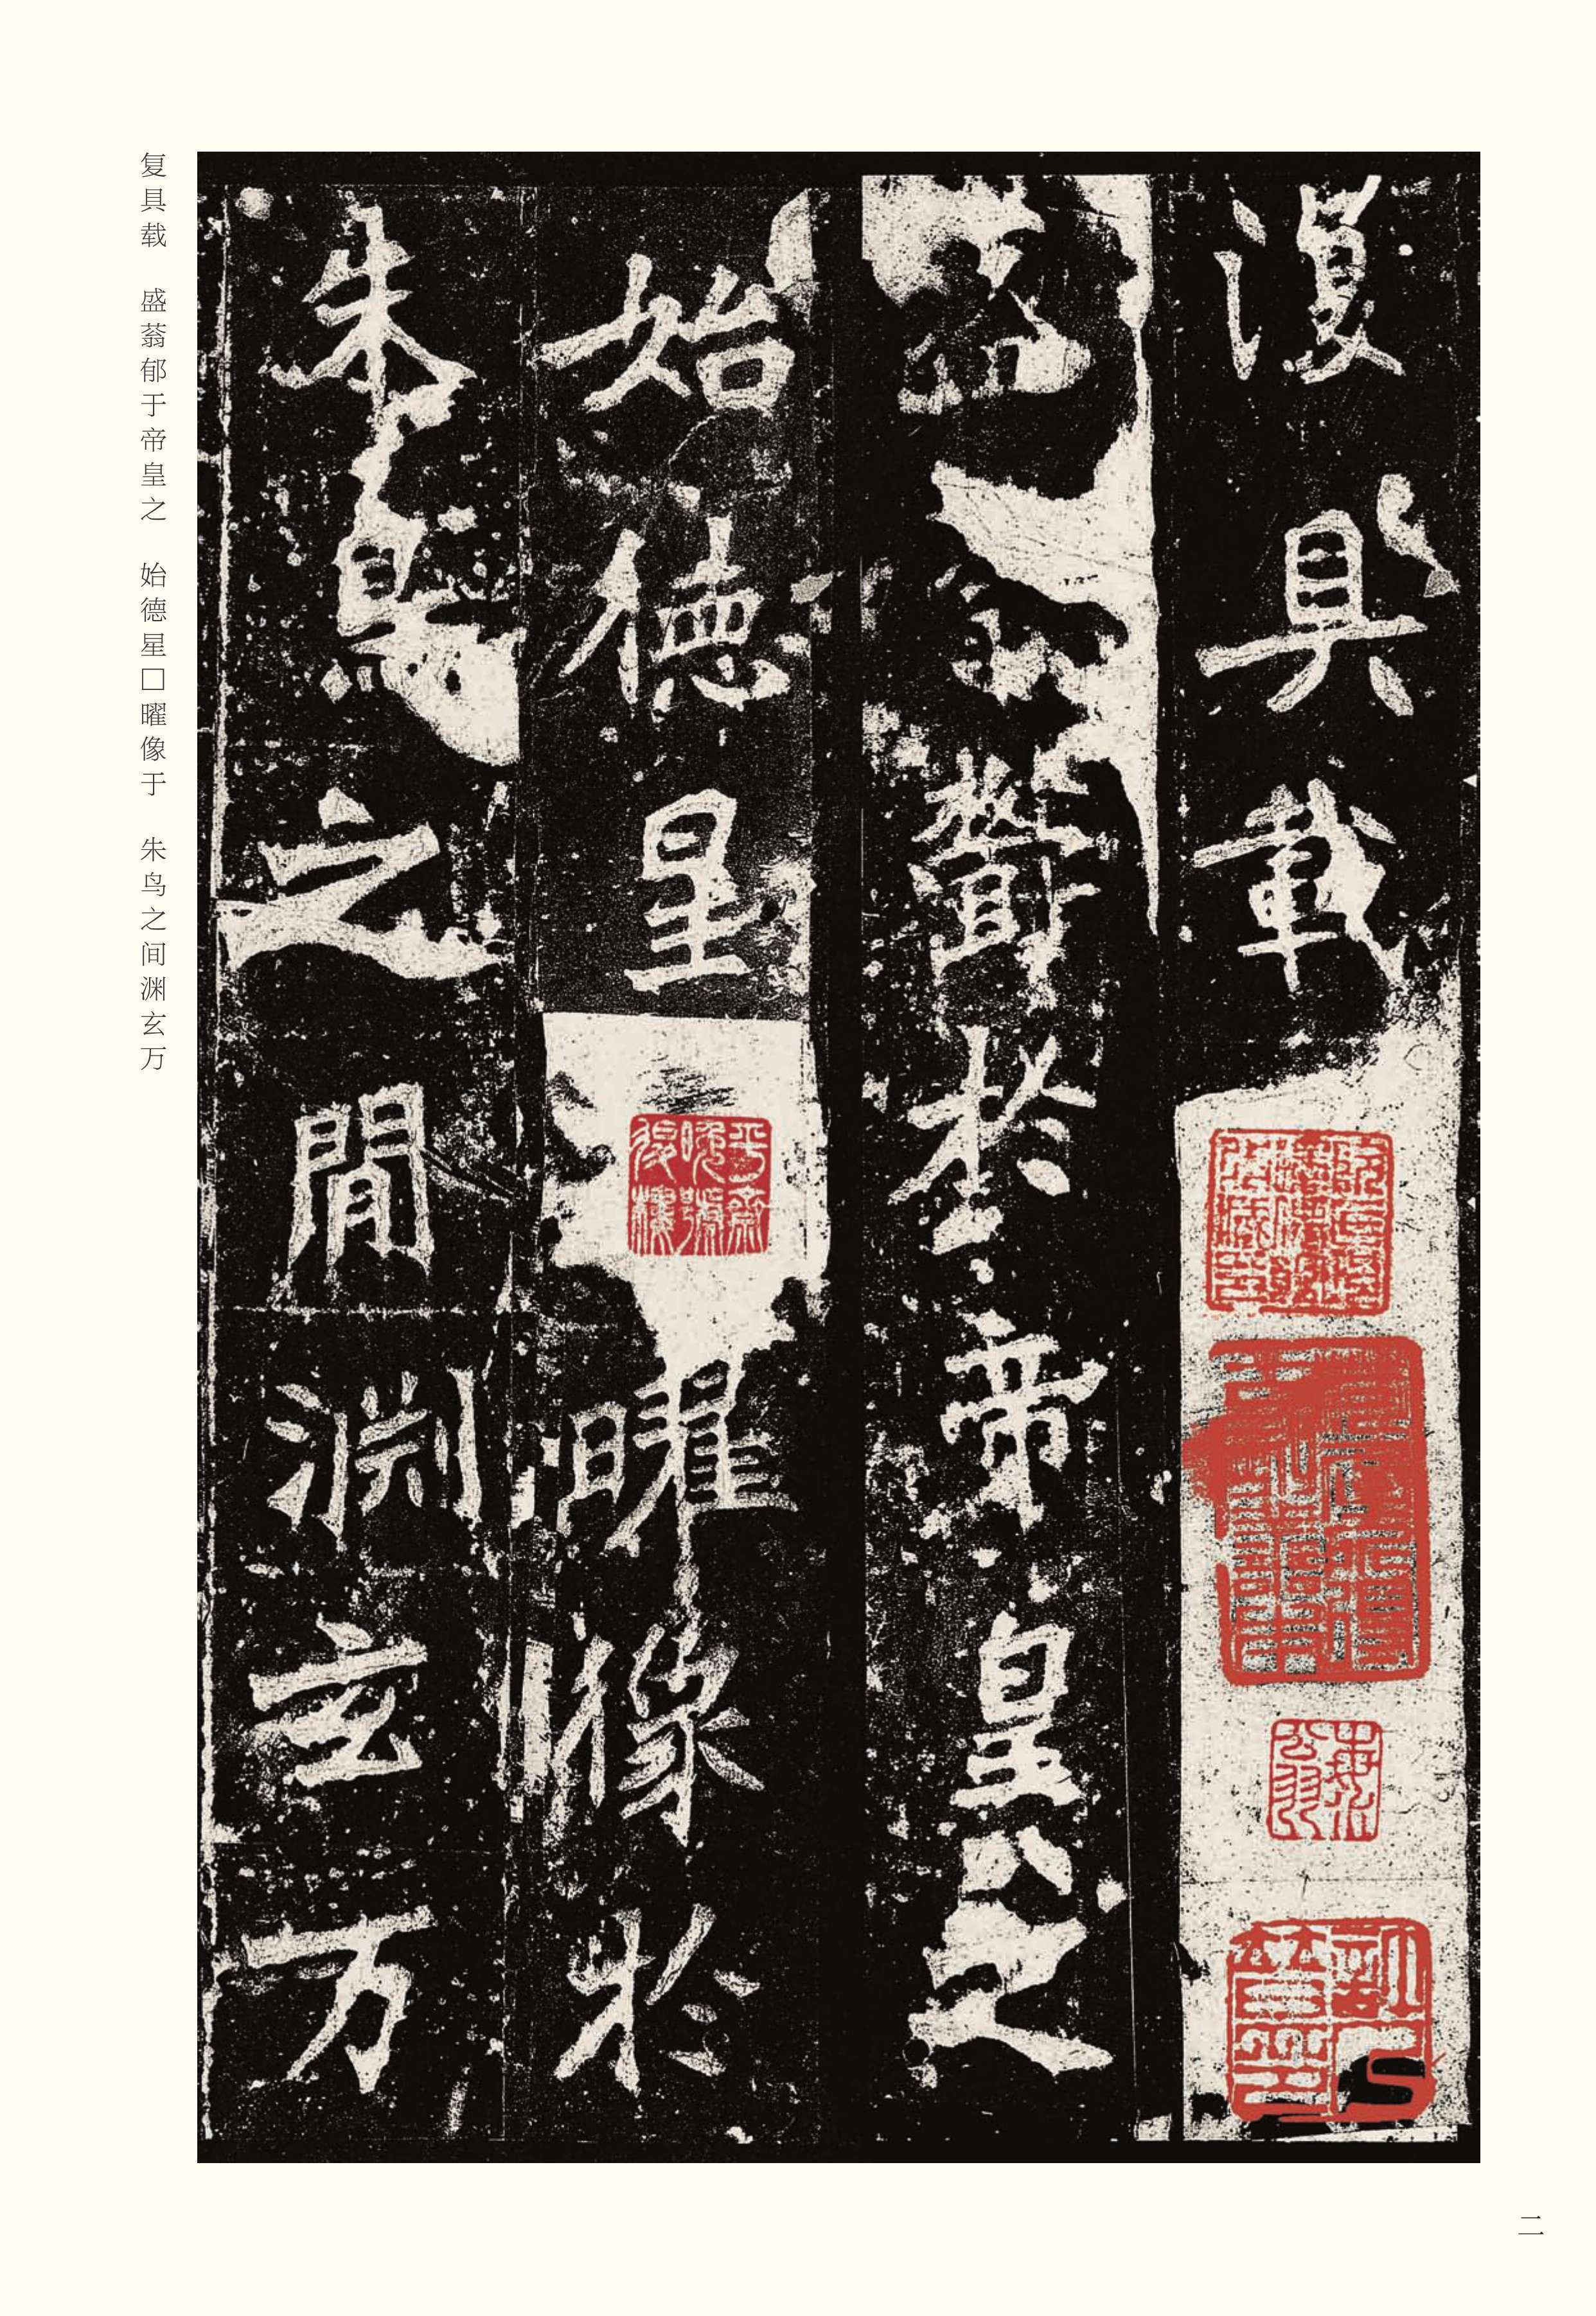 復具載
盛蓊鬱於帝皇之
始德星曜像於
朱鳥之間渊玄万
复具载 盛蓊郁于帝皇之 始德星□曜像于 朱鸟之间渊玄万
二